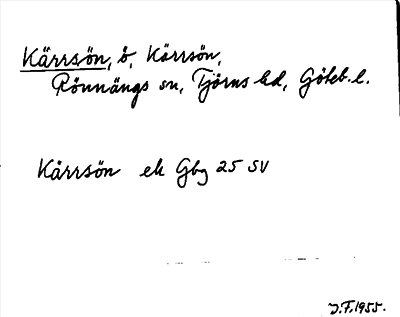 Kärrsön, ö, Kärrsön,
Rönnängs sn, Tjörns hd, Göteb. l.
Kärrsön ek Gbg 25 SV
J.F. 1955.